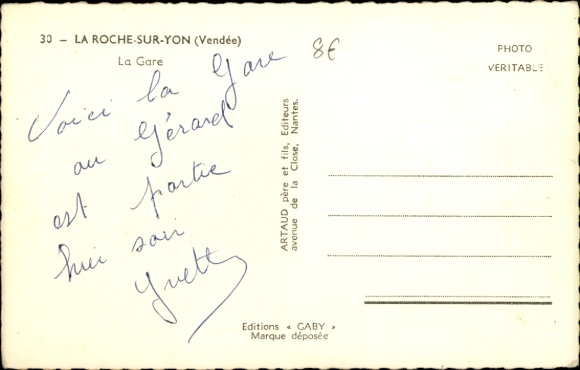 30 — LA ROCHE-SUR-YON (Vendée)
La Gare
8€
PHOTO
VERITABLE
Voici la Gare
au Gérard
est partie
hier soir
Yvette
ARTAUD père et fils, Editeurs
avenue de la Close, Nantes.
Editions « GABY »
Marque déposée